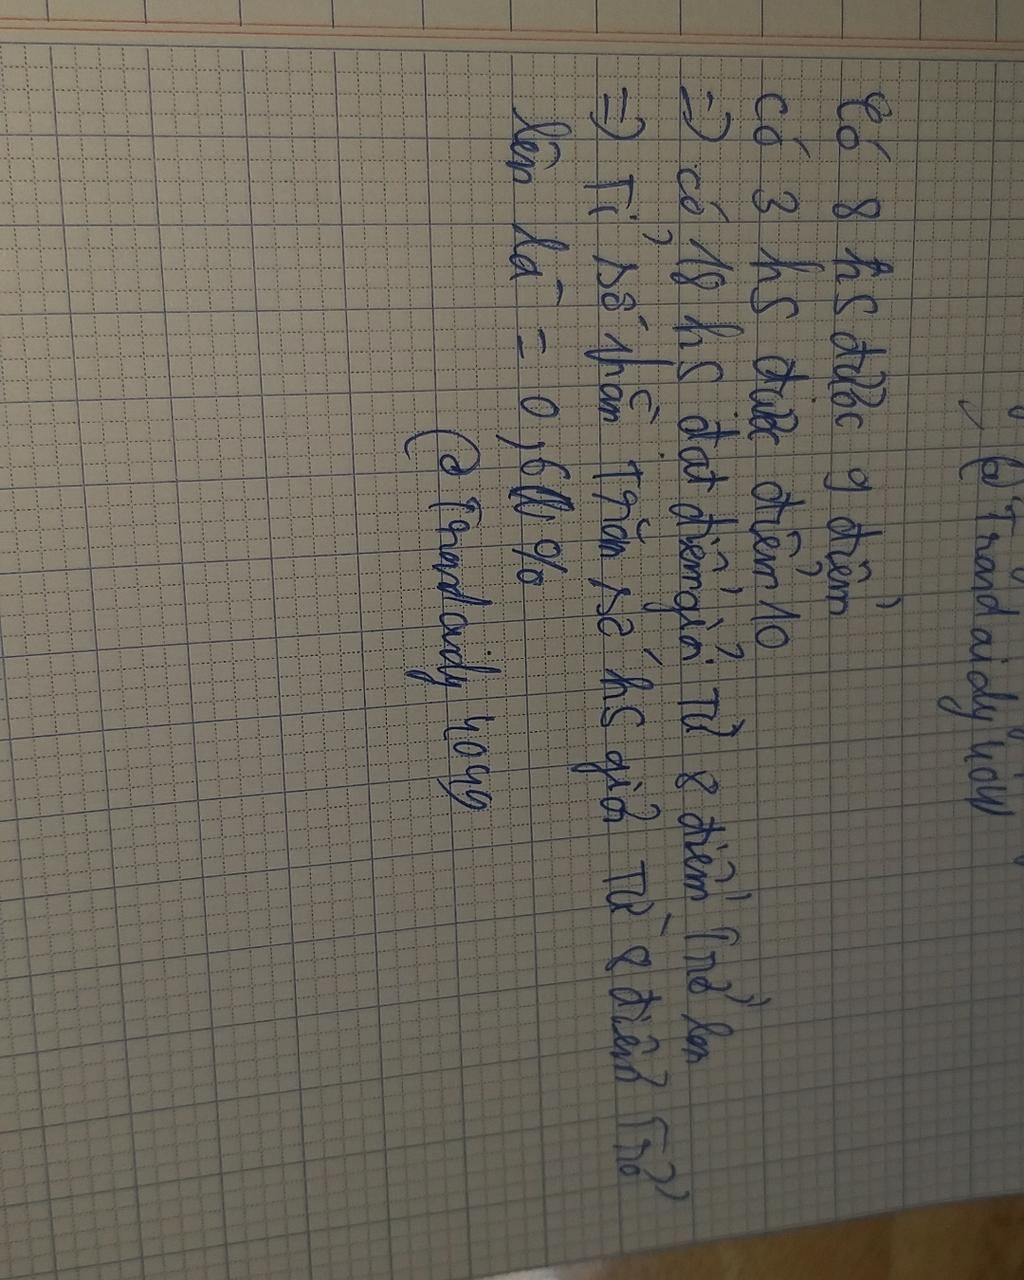 @Trandaidy4044
Có 8 hs được 9 điểm
có 3 hs được điểm 10
=) có 18 hs đạt điểm giỏi từ 8 điểm trở lên
=) Tỉ số phần trăm số hs giỏi từ 8 điểm trở
lên là = 0,6 %
@Trandaidy4044